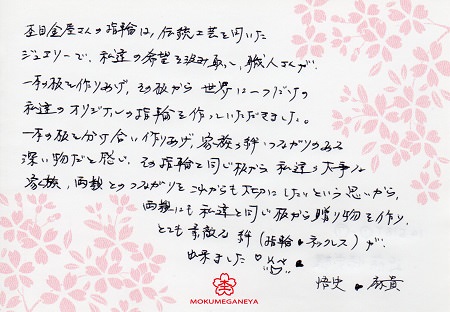 杢目金屋さんの指輪は、伝統工芸を用いた
ジュエリーで、私達の希望を汲み取って、職人さんが、
一本の板を作りあげ、その板から 世界に一つだけの
私達のオリジナルの指輪を作っていただきました。
一本の板を分け合い作りあげ、家族の絆、つながりのある
深い物だと感じ、その指輪と同じ板から 私達の大事な
家族、両親とのつながりをこれからも大切にしたいという思いから、
両親にも私達と同じ板から贈り物を作り、
とても素敵な絆(指輪・ネックレス)が、
出来ました♡
悟史 麻貴
MOKUMEGANEYA